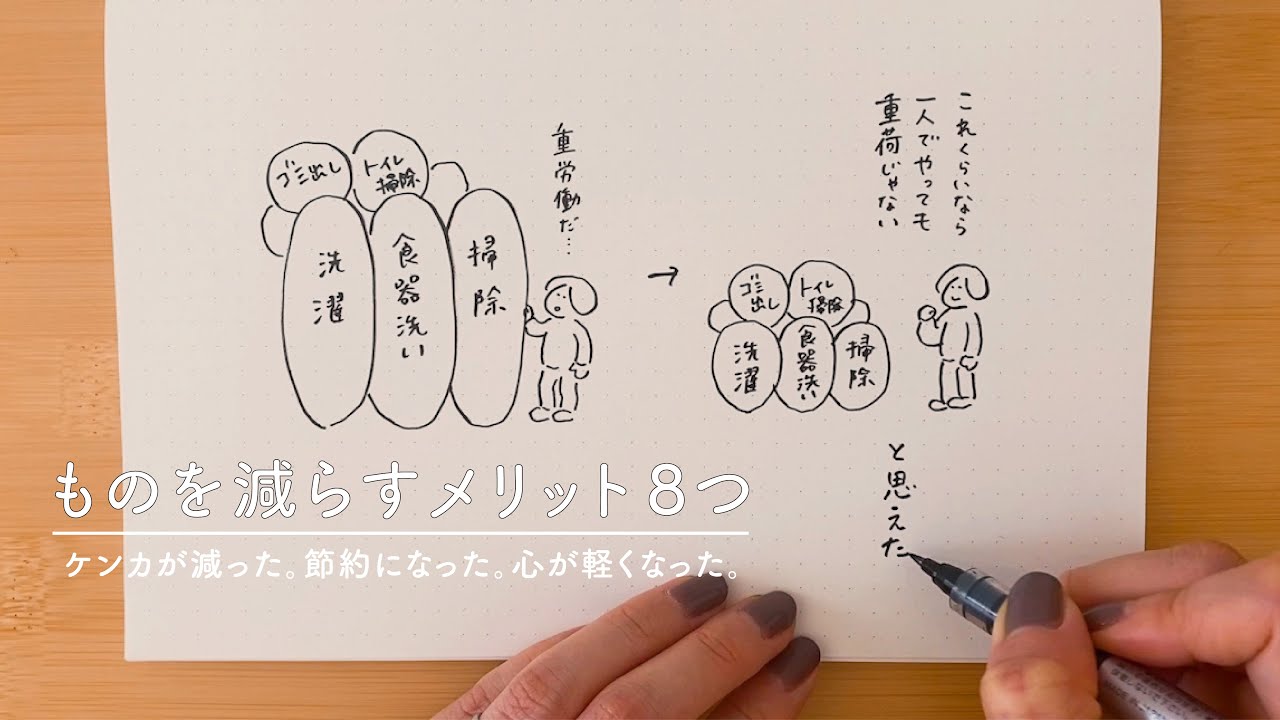 ゴミ出し
トイレ
掃除
洗濯
食器洗い
掃除
重労働だ…
→
これくらいなら
一人でやっても
重荷じゃない
ゴミ
出し
トイレ
掃除
洗濯
食器洗い
掃除
と思えた
ものを減らすメリット8つ
ケンカが減った。節約になった。心が軽くなった。